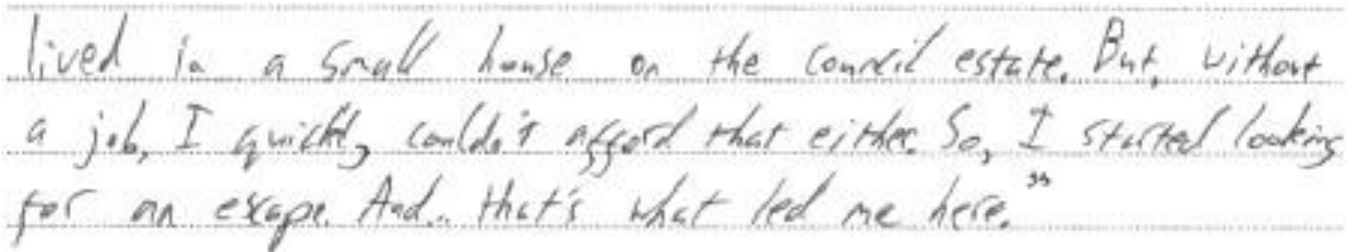 lived in a small house on the council estate. But, without
a job, I quickly couldn't afford that either. So, I started looking
for an escape. And.. that's what led me here."